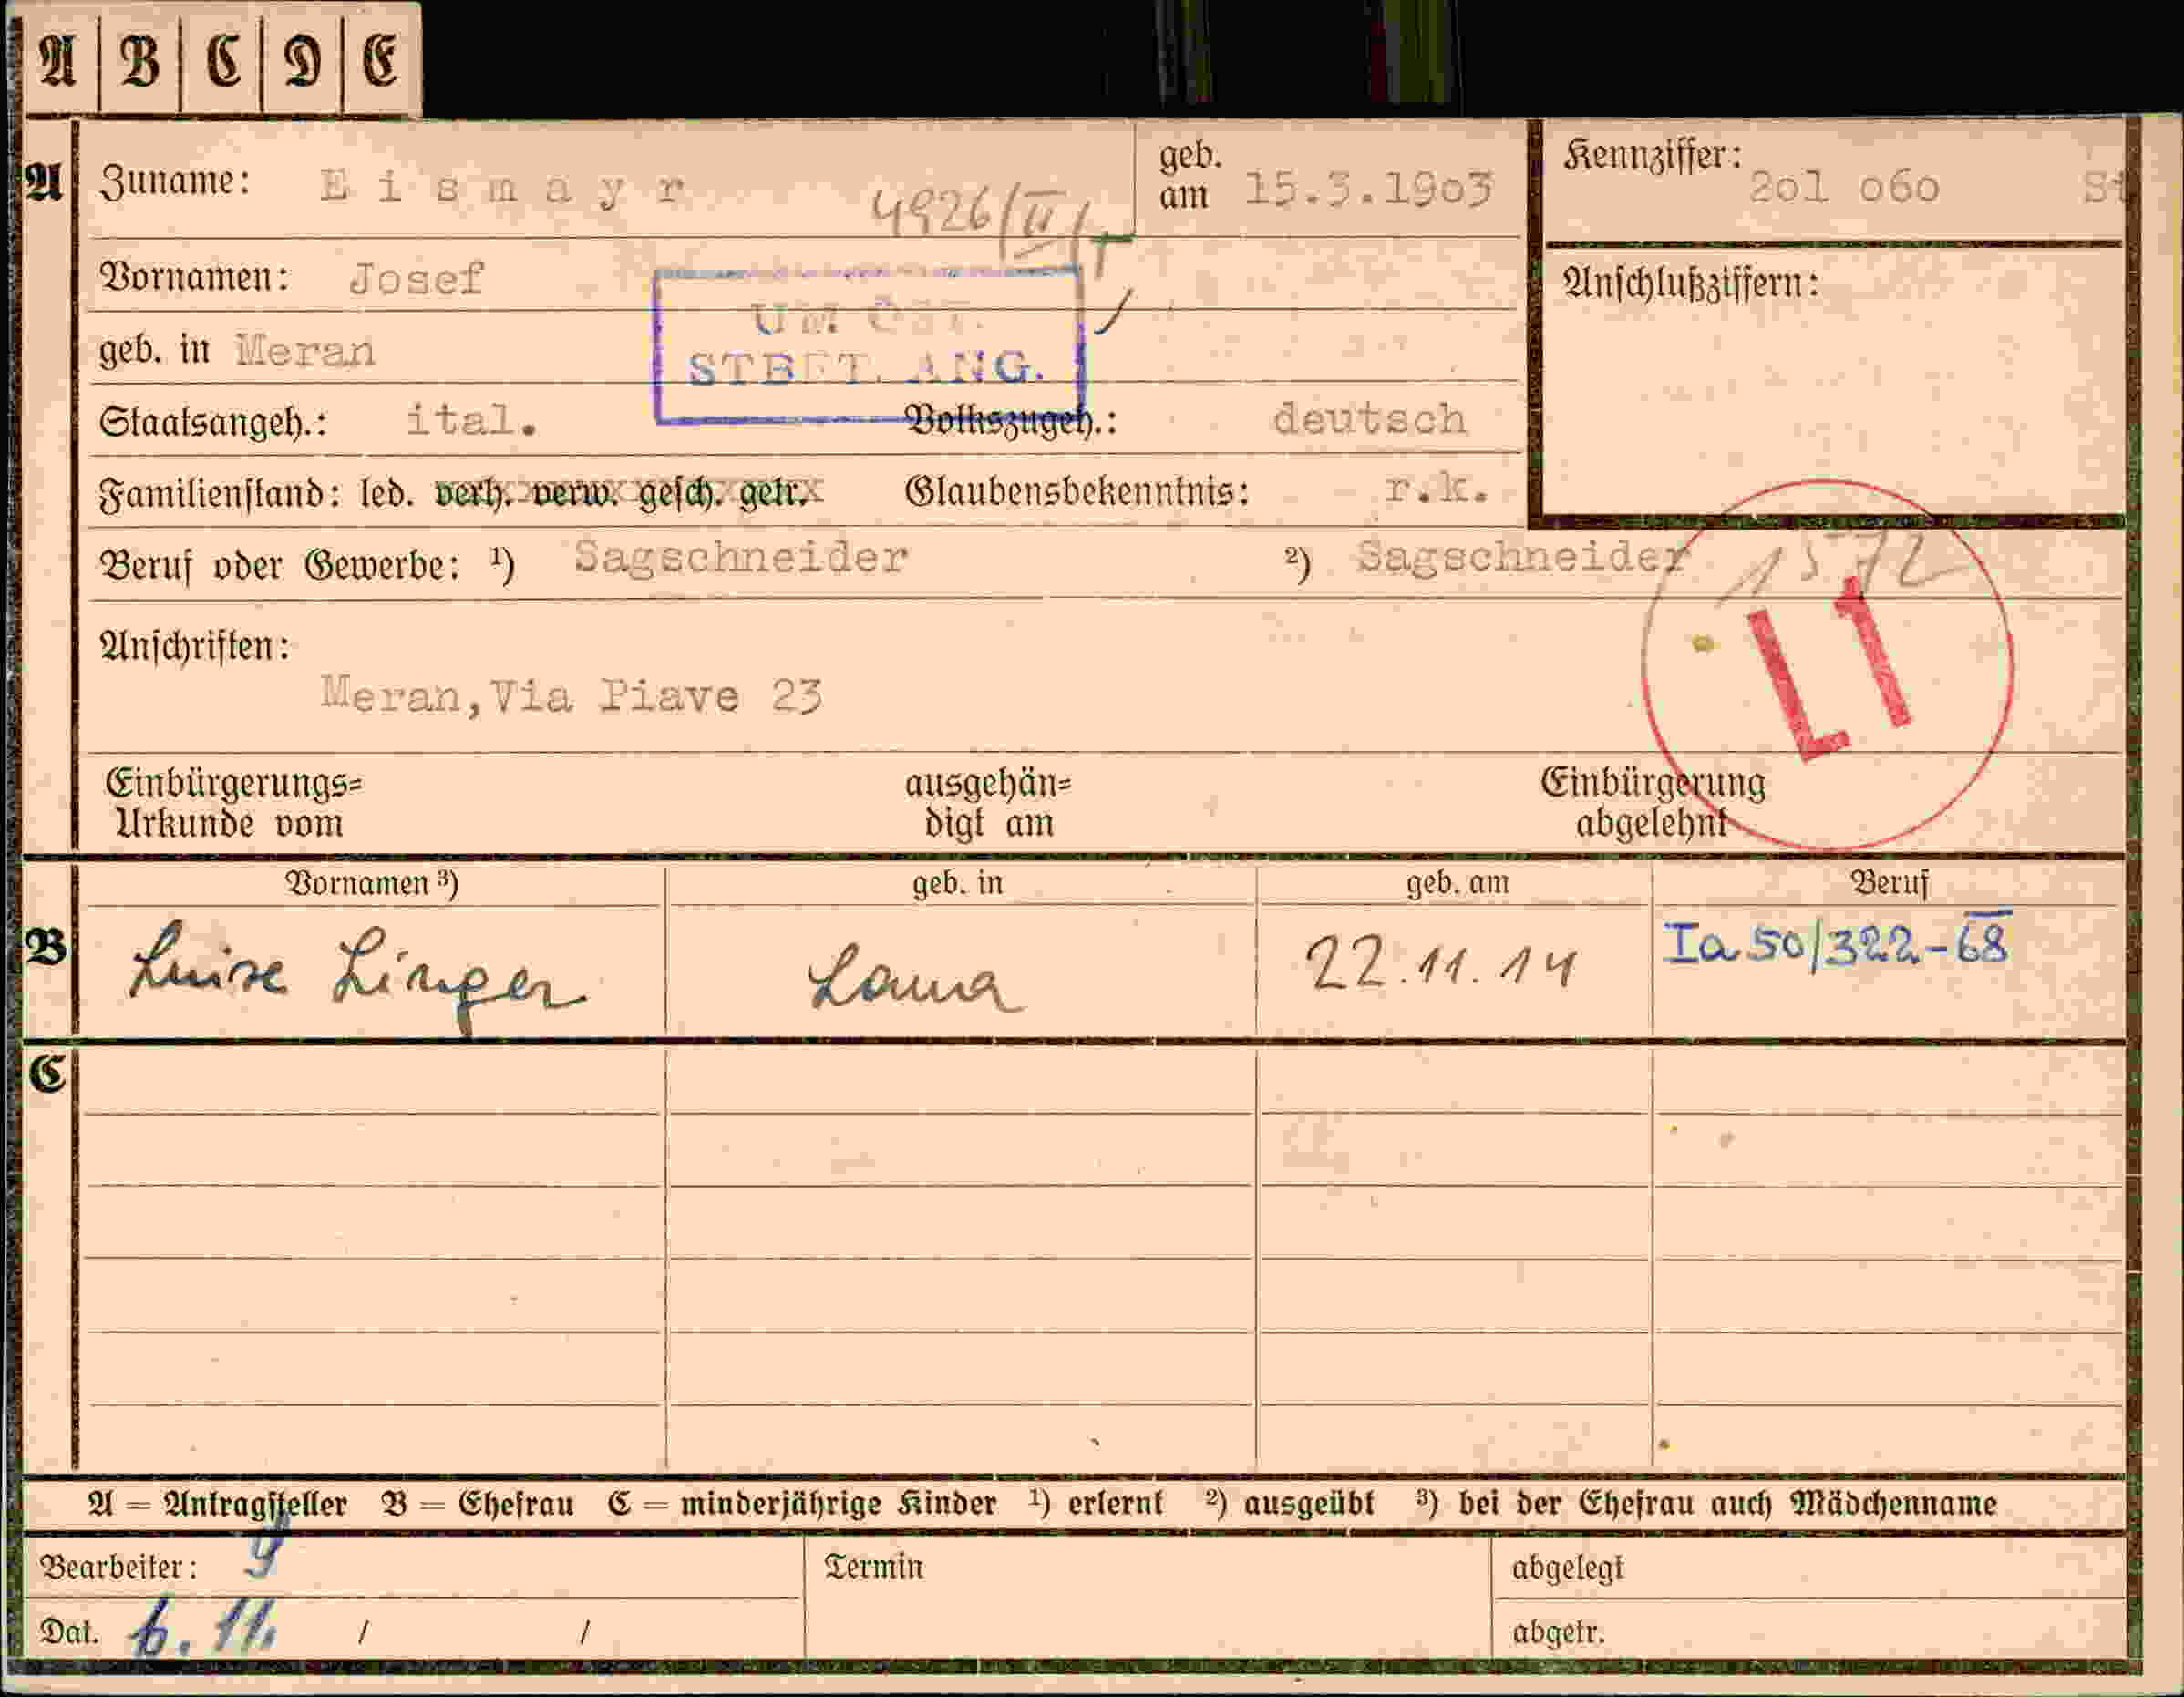 A B C D E
A Zuname: Eismayr 4926/II/ geb. am 15.3.1903 Kennziffer: 2o1 o6o St
Vornamen: Josef Anschlußziffern:
geb. in Meran
STBFT. ANG.
Staatsangeh.: ital. Volkszugeh.: deutsch
Familienstand: led. verh. verw. gesch. getr. Glaubensbekenntnis: r.k.
Beruf oder Gewerbe: ¹) Sagschneider ²) Sagschneider 1572
L1
Anschriften:
Meran,Via Piave 23
Einbürgerungs= Urkunde vom ausgehän= digt am Einbürgerung abgelehnt
Vornamen ³) geb. in geb. am Beruf
B Luise Linger Lana 22.11.14 Ia 50/322-68
C
A = Antragsteller B = Ehefrau C = minderjährige Kinder ¹) erlernt ²) ausgeübt ³) bei der Ehefrau auch Mädchenname
Bearbeiter: Termin abgelegt
Dat. 6.11. / / abgetr.